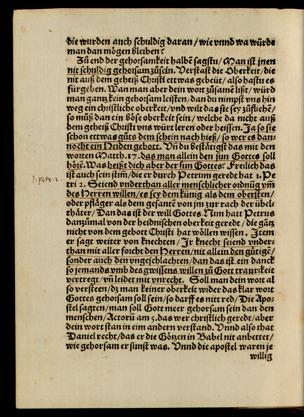 die wurden auch schuldig daran / wie vnnd wa würde
man dan mögen bleiben?
Zů end der gehorsamkeit halbẽ sagstu / Man ist jnen
nit schuldig gehorsam zůsein. Verstast die Oberkeit / die
nit auß dem geheiß Christi etwas gebeüt / also hastu es
fürgeben. Wan man aber dein wort zůsamẽ lißt / würd
man gantz kein gehorsam leisten / dan du nimpst vns hin
weg ein christliche oberkeit / vnd wilt das sie sey zůfliehẽ /
so můß dan ein böse oberkeit sein / welche da nicht auß
dem geheiß Christi vns würt leren oder heissen. Ja so sie
schon ettwas gůts dem schein nach hieß / so wer es dan
nocht ein Heiden gebott. Vñ du bestätigst das mit den
worten Matth. 17. das man allein den sun Gottes soll
hörẽ. Was heißt dich aber der sun Gottes? Freilich das
ist auch sein stim / die er durch Petrum geredt hat 1. Pe
1. petr. 2.
tri 2. Seiend vnderthan aller menschlicher ordnũg vm̃
des Herren willen / es sey dem künig als dem obersten /
oder pfläger als den gesantẽ von jm zur rach der übel-
thäter / Dan das ist der will Gottes. Nun hatt Petrus
danzumal von der heidnischen oberkeit geredt / die gãtz
nicht von dem gebott Christi hat wöllen wissen. Item
er sagt weiter von knechten / Ir knecht seiend vnder-
than mit aller forcht den Herren / nit allein den gütigẽ
sonder auch den vngeschlachten / dan das ist ein danck
so jemands vmb des gwissens willen zů Gott traurikeit
vertregt / vñ leidet mit vnrecht. Soll man dein wort al
so versteen / dz man keiner oberkeit wider das klar wort
Gottes gehorsam soll sein / so darff es nitt red / Die Apo-
stel sagten / man soll Gott meer gehorsam sein dan den
menschen / Actorũ am 5. das wer christlich geredt / aber
dein wort stan in eim andern verstand. Vnnd also that
Daniel recht / das er die Götzen in Babel nit anbettet /
wie gehorsam er sunst was. Vnnd die apostel waren je
willig